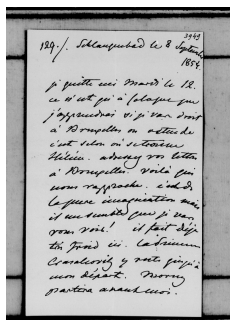 3949
129./. Schlangenbad le 8 Septembre
1854
je quitte ici Mardi le 12.
ce n'est qu'à Cologne que
j'apprendrai si je vais droit
à Bruxelles ou
c'est selon où se trouve
Hélène. adressez vos lettres
à Bruxelles. voilà qui
nous rapproche. c'est de
la pure imagination mais
il me semble que je vais
vous voir! il fait déjà
très froid ici. la Princesse
y reste jusqu'à
mon départ. Morny
partira avant moi.